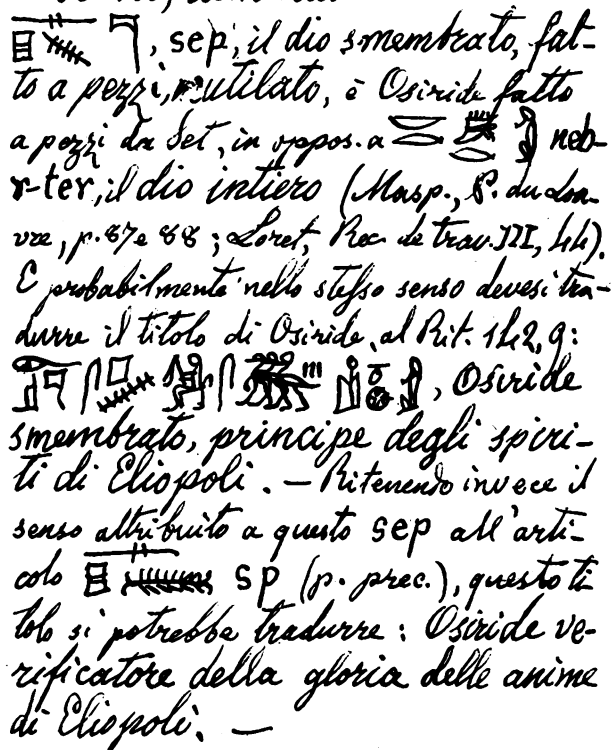 , sep, il dio smembrato, fat-
to a pezzi, mutilato, è Osiride fatto
a pezzi da Set, in oppos. a neb-
r-ter, il dio intiero (Masp., P. du Lou-
vre, p. 87 e 88; Loret, Rec. de trav. III, 44).
E probabilmente nello stesso senso devesi tra-
durre il titolo di Osiride, al Rit. 142, 9:
, Osiride
smembrato, principe degli spiri-
ti di Eliopoli. — Ritenendo invece il
senso attribuito a questo sep all'arti-
colo sp (p. prec.), questo ti
tolo si potrebbe tradurre: Osiride ve-
rificatore della gloria delle anime
di Eliopoli. —